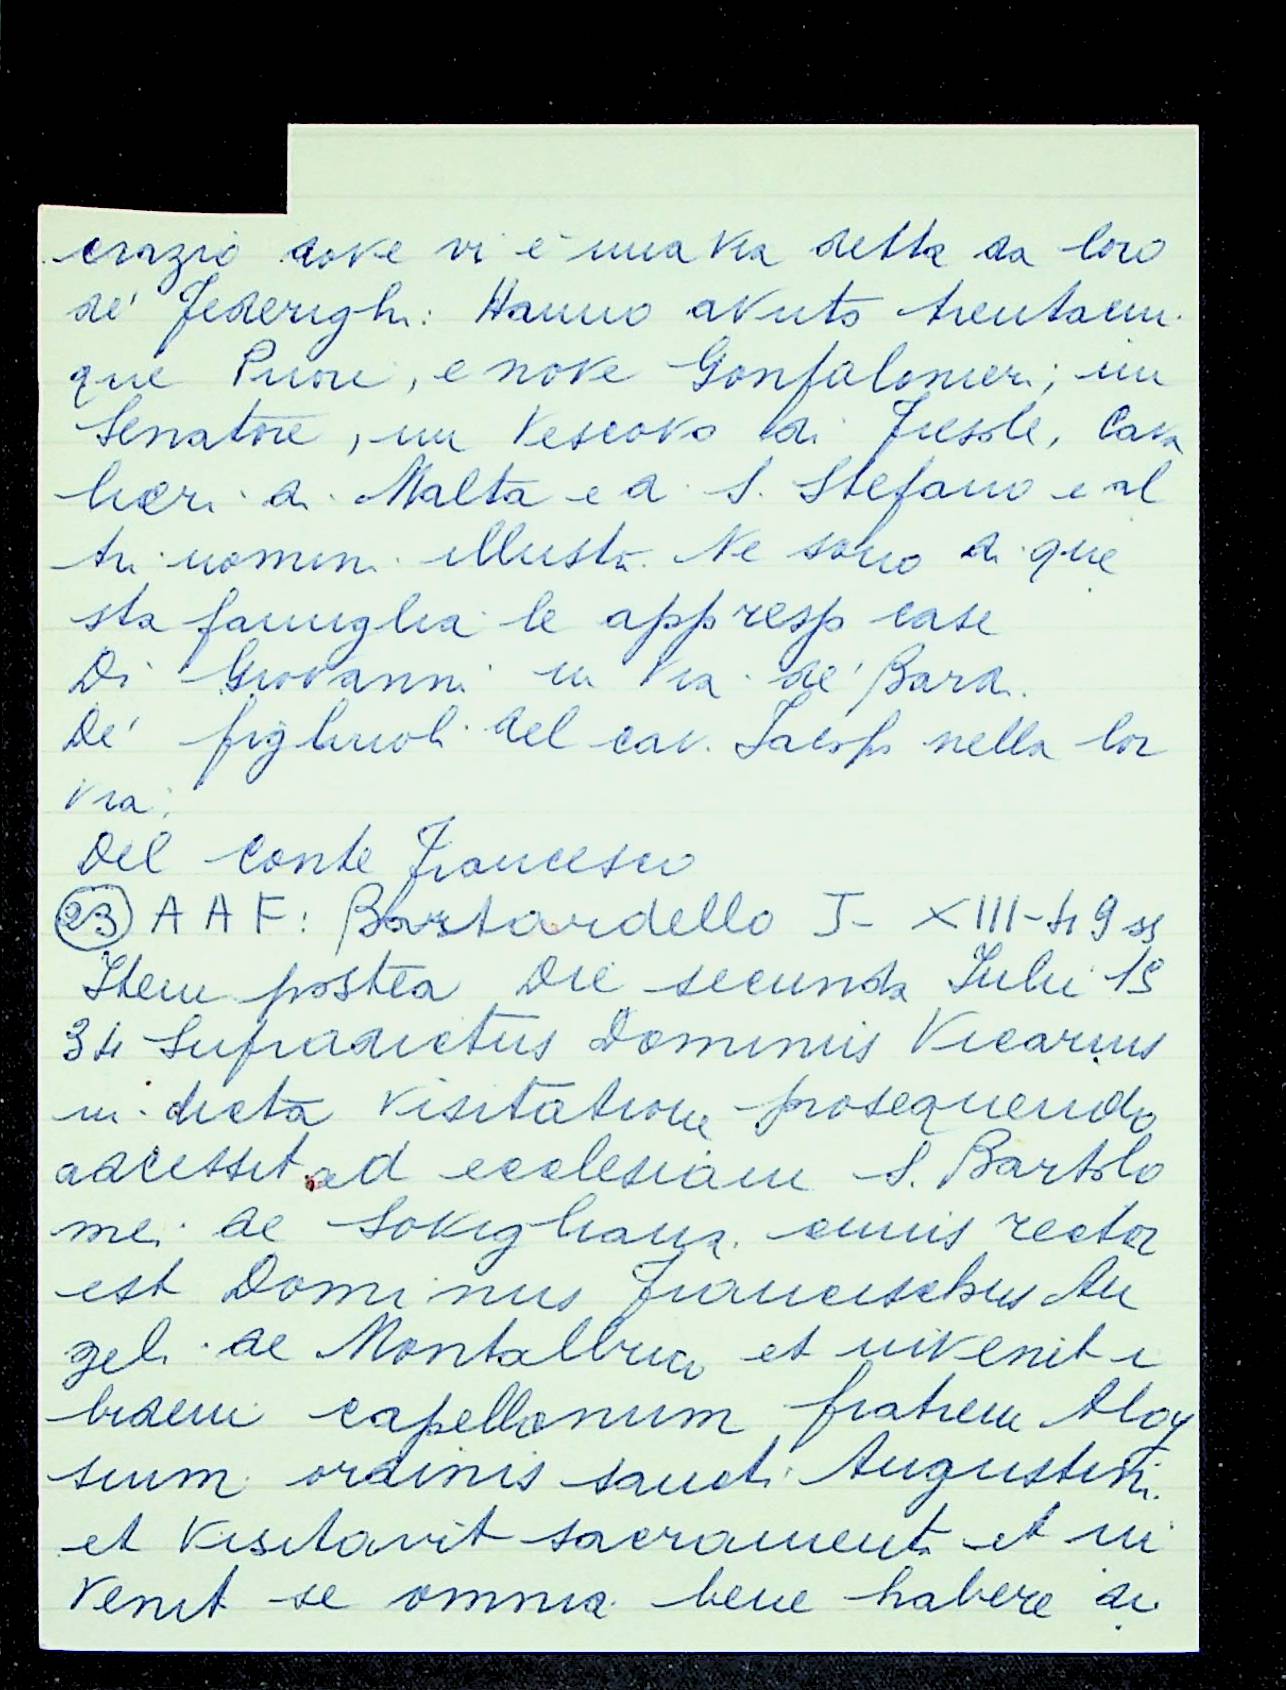 crazio dove vi è una via detta da loro
de' Federighi: Hanno avuto trentacin
que Priori, e nove Gonfalonieri; un
Senatore, un Vescovo di Fiesole, Cava
lieri di Malta e di S. Stefano e al
tri uomini illustri. Ne sono di que
sta famiglia le appresp case
Di Giovanni in via de' Bardi.
De' figliuoli del cav. Jacopo nella lor
via;
Del conte Francesco
23 AAF: Bastardello I- XIII-49 ss
Item postea Die secunda Iulii 15
34 Supradictus Dominus Vicarius
in dicta visitatione prosequendo
adcessit ad ecclesiam S. Bartolo
mei de Sovigliana cuius rector
est Dominus Francischus An
geli de Montalbuco et invenit i
bidem capellanum fratrem Aloy
sium ordinis sancti Augustini
et visitavit sacramenta et in
venit se omnia bene habere di